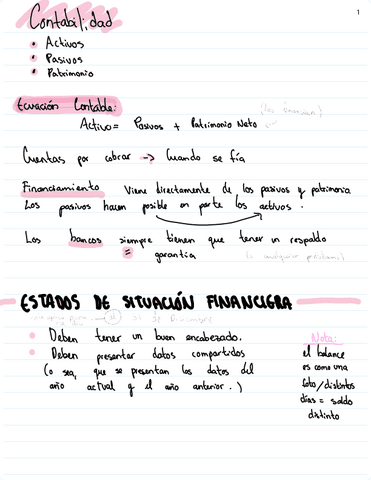 1
Contabilidad
• Activos
• Pasivos
• Patrimonio
Ecuación Contable:
Activo = Pasivos + Patrimonio Neto
Cuentas por cobrar -> Cuando se fía
Financiamiento Viene directamente de los pasivos y patrimonio
Los pasivos hacen posible en parte los activos.
Los bancos siempre tienen que tener un respaldo
= garantía
ESTADOS DE SITUACIÓN FINANCIERA
31 de Diciembre
• Deben tener un buen encabezado.
• Deben presentar datos compartidos
(o sea, que se presentan los datos del
año actual y el año anterior.)
Nota:
el balance
es como una
foto/distintos
días = saldo
distinto